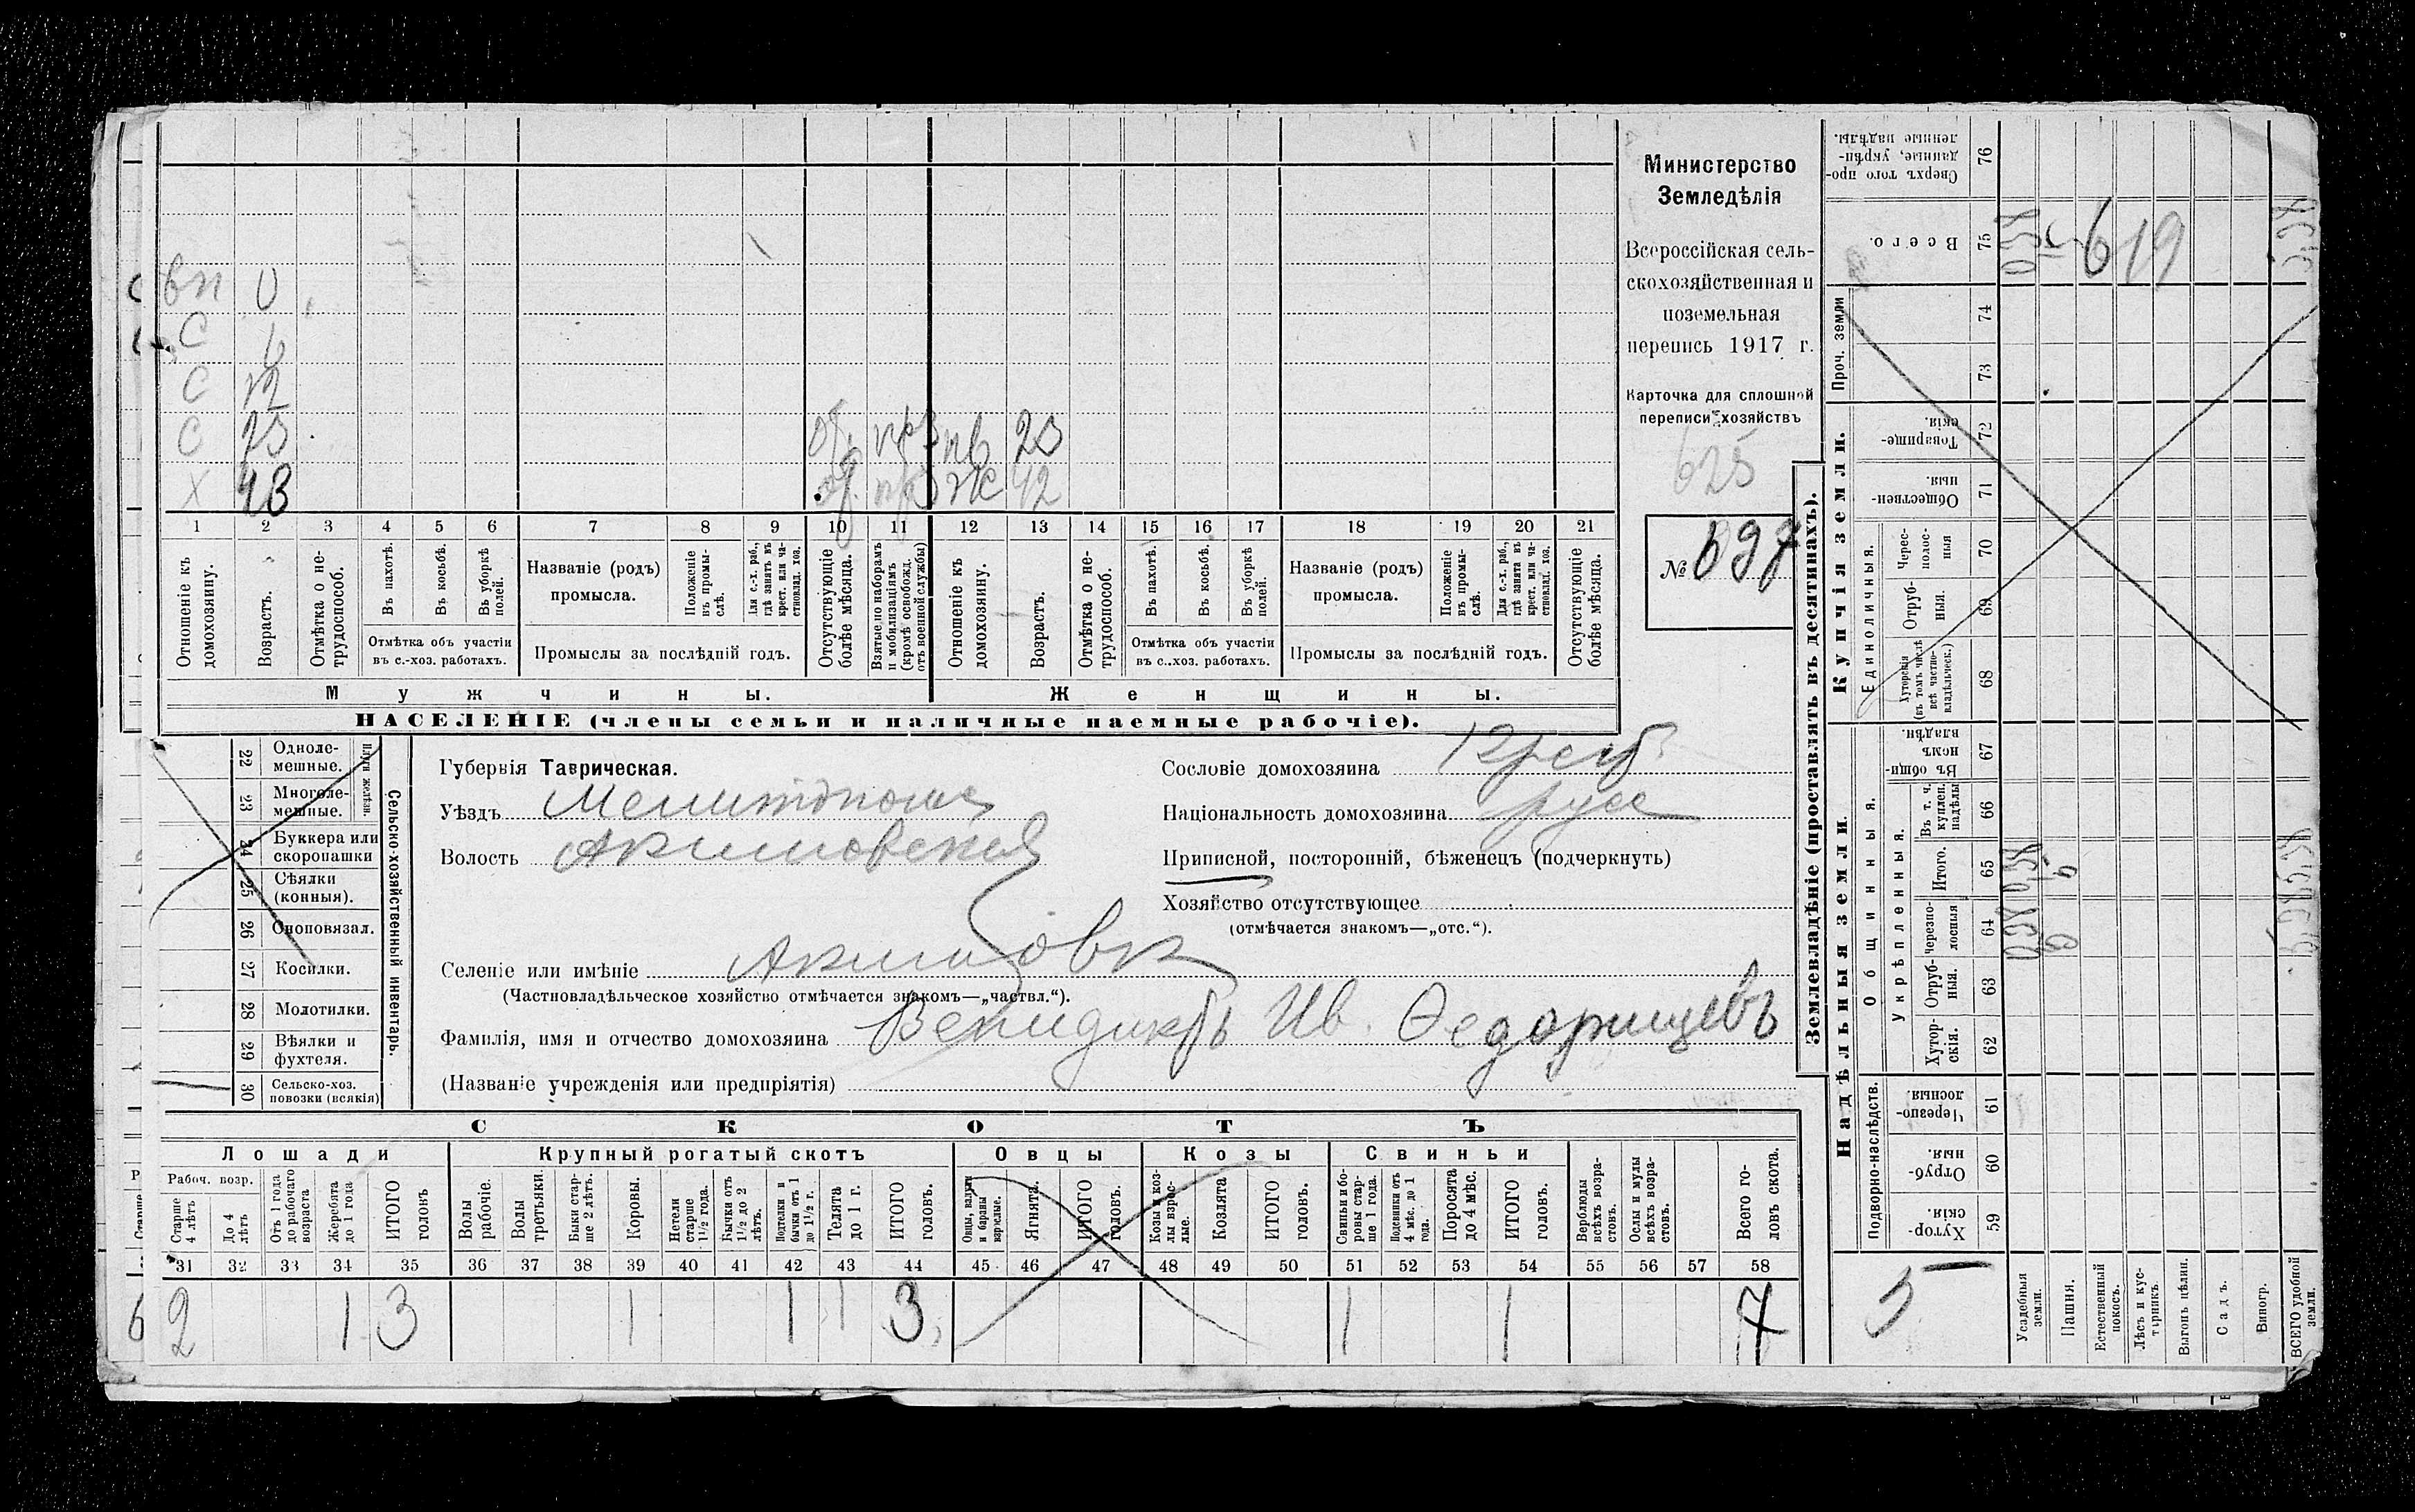 вп 0
с 6
с 12
с 23 пв 23
х 43 ж 42
1 2 3 4 5 6 7 8 9 10 11 12 13 14 15 16 17 18 19 20 21
Отношеніе къ домохозяину.
Возрастъ.
Отмѣтка о нетрудоспособ.
Въ пахотѣ.
Въ косьбѣ.
Въ уборкѣ полей.
Отмѣтка объ участіи
въ с.-хоз. работахъ.
Названіе (родъ)
промысла.
Положеніе въ промыслѣ.
Для с.-х. раб., гдѣ занятъ въ крест. или частновлад. хоз.
Промыслы за послѣдній годъ.
Отсутствующіе болѣе мѣсяца.
Взятые по наборамъ и мобилизаціямъ (кромѣ освобожд. отъ военной службы)
Отношеніе къ домохозяину.
Возрастъ.
Отмѣтка о нетрудоспособ.
Въ пахотѣ.
Въ косьбѣ.
Въ уборкѣ полей.
Отмѣтка объ участіи
въ с..хоз. работахъ.
Названіе (родъ)
промысла.
Положеніе въ промыслѣ.
Для с.-х. раб., гдѣ занята въ крест. или частновлад. хоз.
Промыслы за послѣдній годъ.
Отсутствующіе болѣе мѣсяца.
Мужчины. Женщины.
НАСЕЛЕНІЕ (члены семьи и наличные наемные рабочіе).
Министерство
Земледѣлія
Всероссійская сель-
скохозяйственная и
поземельная
перепись 1917 г.
Карточка для сплошной
переписи хозяйствъ
625
№ 697
Сельско-хозяйственный инвентарь.
Плуги желѣзн.
22 Однолемешные.
23 Многолемешные.
24 Буккера или скоропашки
25 Сѣялки (конныя).
26 Сноповязал.
27 Косилки.
28 Молотилки.
29 Вѣялки и фухтеля.
30 Сельско-хоз. повозки (всякія)
Губернія Таврическая.
Уѣздъ Мелитопольс
Волость Акимовская
Селеніе или имѣніе Акимовк
(Частновладѣльческое хозяйство отмѣчается знакомъ—„частвл.“).
Фамилія, имя и отчество домохозяина Венидиктъ Ив. Ѳедорищевъ
(Названіе учрежденія или предпріятія)
Сословіе домохозяина Крест.
Національность домохозяина русс
Приписной, посторонній, бѣженецъ (подчеркнуть)
Хозяйство отсутствующее
(отмѣчается знакомъ—„отс.“).
СКОТЪ
Лошади Крупный рогатый скотъ Овцы Козы Свиньи
Рабоч. возр.
Старше 4 лѣтъ
До 4 лѣтъ
Отъ 1 года до рабочаго возраста
Жеребята до 1 года
ИТОГО головъ
Волы рабочіе.
Волы третьяки.
Быки старше 2 лѣтъ.
Коровы.
Нетели старше 1½ года.
Бычки отъ 1½ до 2 лѣтъ.
Подтелки и бычки отъ 1 до 1½ г.
Телята до 1 г.
ИТОГО головъ.
Овцы, валухи и бараны взрослые.
Ягнята.
ИТОГО головъ.
Козы и козлы взрослые.
Козлята
ИТОГО головъ.
Свиньи и боровы старше 1 года.
Подсвинки отъ 4 мѣс. до 1 года.
Поросята до 4 мѣс.
ИТОГО головъ.
Верблюды всѣхъ возрастовъ.
Ослы и мулы всѣхъ возрастовъ.
Всего головъ скота.
31 32 33 34 35 36 37 38 39 40 41 42 43 44 45 46 47 48 49 50 51 52 53 54 55 56 57 58
2 1 3 1 1 1 3 1 1 7
Землевладѣніе (проставлять въ десятинахъ).
Купчія земли.
Надѣльныя земли.
Сверхъ того проданные, укрѣпленные надѣлы. 76
Всего. 75
Проч. земли 74 73
Товарищескія. 72
Общественныя. 71
Единоличныя.
Чересполосныя 70
Отрубныя. 69
Хуторскія (въ томъ числѣ всѣ частновладѣльческ.) 68
Общинныя.
Въ общинномъ владѣн. 67
Укрѣпленныя.
Въ т. ч. куплен. надѣлы 66
Итого. 65
Черезполосныя 64
Отрубныя. 63
Хуторскія. 62
Подворно-наслѣдств.
Черезполосныя 61
Отрубныя. 60
Хуторскія. 59
619
5
Усадебныя земли.
Пашня.
Естественный покосъ.
Лѣсъ и кустарникъ.
Выгонъ цѣлин.
Садъ.
Виногр.
ВСЕГО удобной земли.